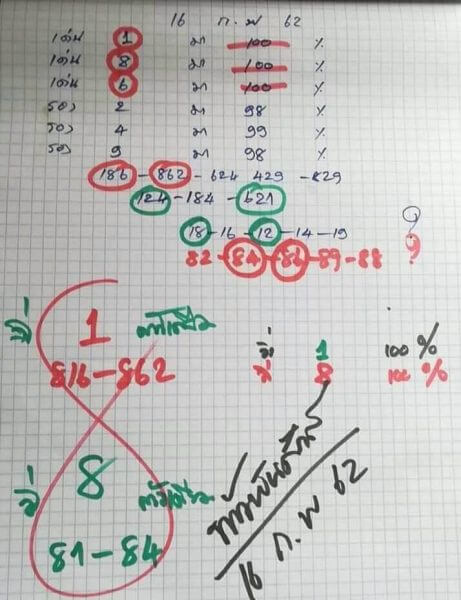 16 ก.พ 62
เด่น 1 มา 100 %
เด่น 8 มา 100 %
เด่น 6 มา 100 %
รอง 2 มา 98 %
รอง 4 มา 99 %
รอง 9 มา 98 %
186-862-624 429-829
124-184-621
18-16-12-14-19
82-84-86-89-88
มี 1 ตัวเดียว
816-862
มี 1 100 %
มี 8 100 %
มี 8 ตัวเดียว
81-84
16 ก.พ 62